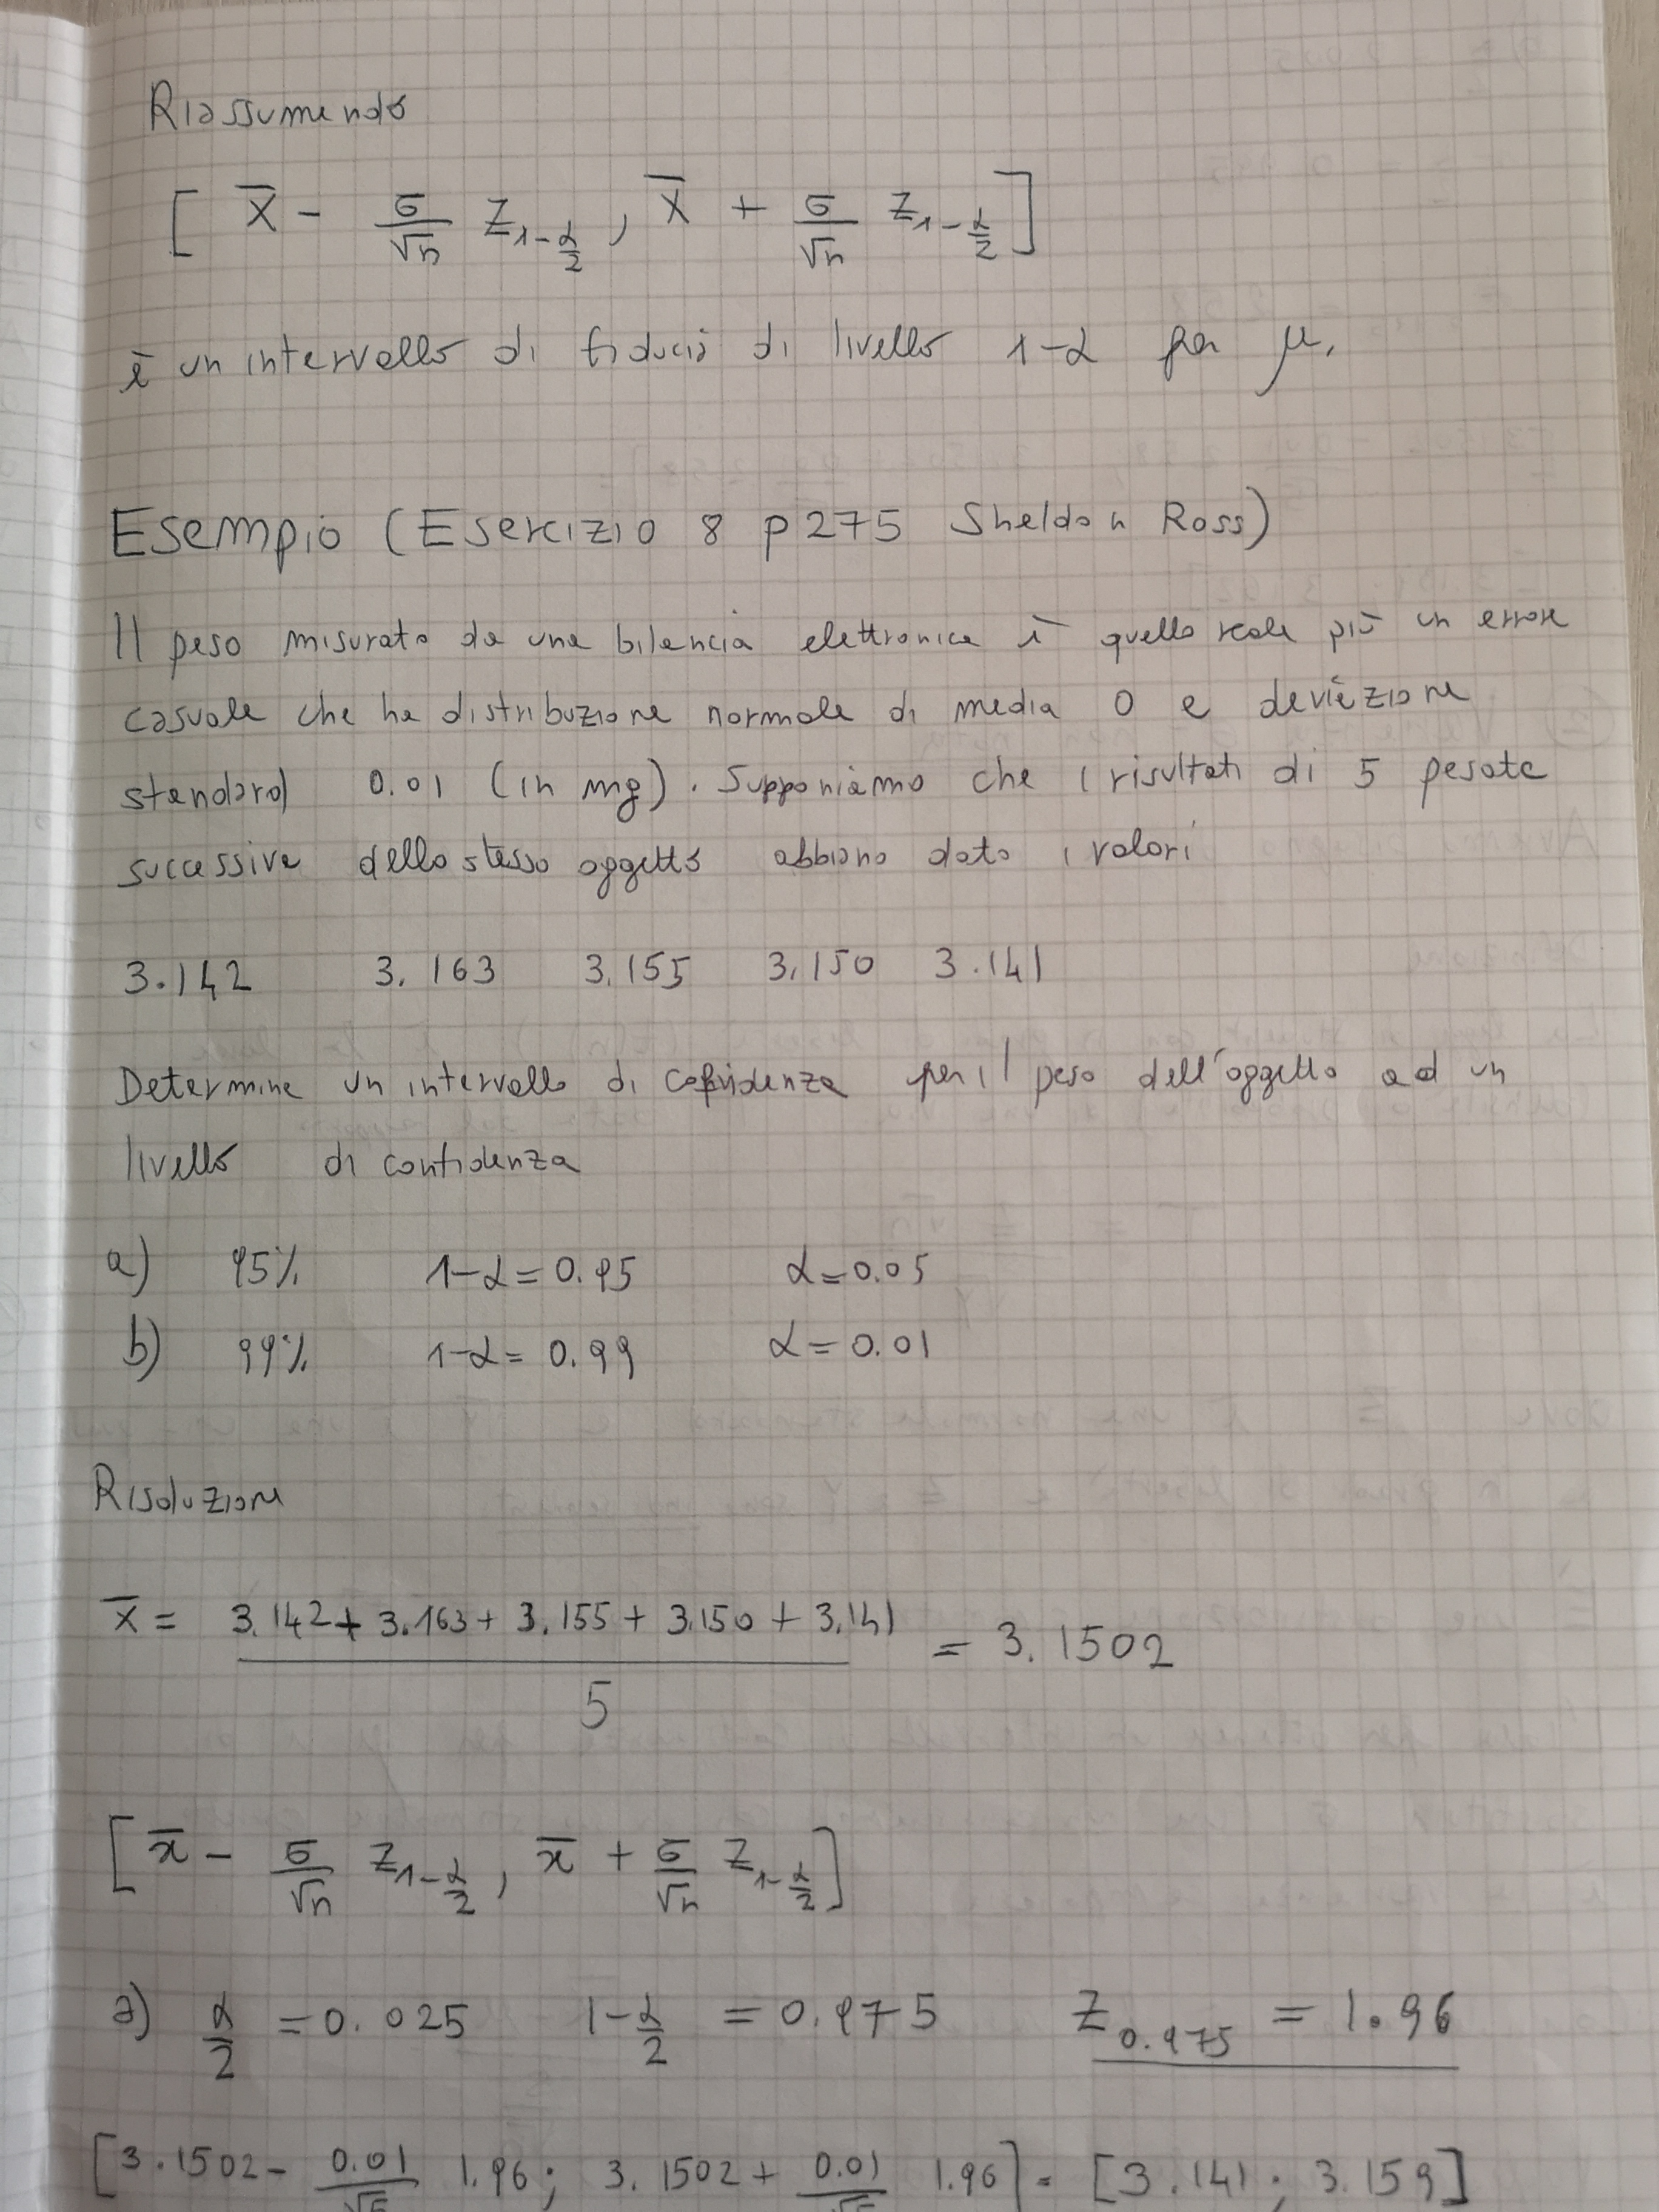 Riassumendo
[ x̄ - σ/√n z_{1-α/2} , x̄ + σ/√n z_{1-α/2} ]
è un intervallo di fiducia di livello 1-α per μ.
Esempio (Esercizio 8 p 275 Sheldon Ross)
Il peso misurato da una bilancia elettronica è quello reale più un errore
casuale che ha distribuzione normale di media 0 e deviazione
standard 0.01 (in mg). Supponiamo che i risultati di 5 pesate
successive dello stesso oggetto abbiano dato i valori
3.142 3.163 3.155 3.150 3.141
Determine un intervallo di confidenza per il peso dell'oggetto ad un
livello di confidenza
a) 95% 1-α = 0.95 α = 0.05
b) 99% 1-α = 0.99 α = 0.01
Risoluzione
x̄ = (3.142 + 3.163 + 3.155 + 3.150 + 3.141) / 5 = 3.1502
[ x̄ - σ/√n z_{1-α/2} , x̄ + σ/√n z_{1-α/2} ]
a) α/2 = 0.025 1-α/2 = 0.975 z_{0.975} = 1.96
[3.1502 - 0.01/√5 1.96 ; 3.1502 + 0.01/√5 1.96] = [3.141 ; 3.159]